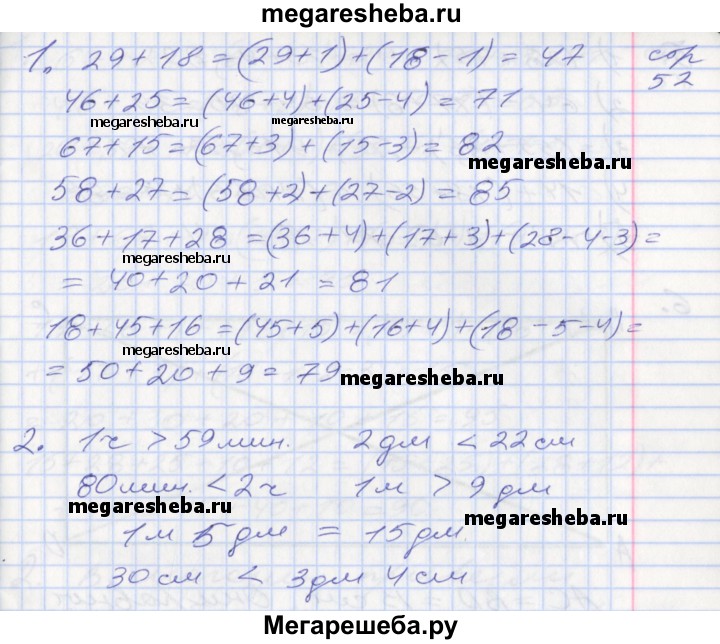 megaresheba.ru
1. 29+18=(29+1)+(18-1)=47 стр
46+25=(46+4)+(25-4)=71 52
megaresheba.ru megaresheba.ru
67+15=(67+3)+(15-3)=82
megaresheba.ru
58+27=(58+2)+(27-2)=85
36+17+28=(36+4)+(17+3)+(28-4-3)=
megaresheba.ru
=40+20+21=81
18+45+16=(45+5)+(16+4)+(18-5-4)=
megaresheba.ru
=50+20+9=79
megaresheba.ru
2. 1ч > 59 мин. 2дм < 22см
80мин. < 2ч 1м > 9дм
megaresheba.ru megaresheba.ru
1м 5дм = 15дм.
30см < 3дм 4см
Мегарешеба.ру